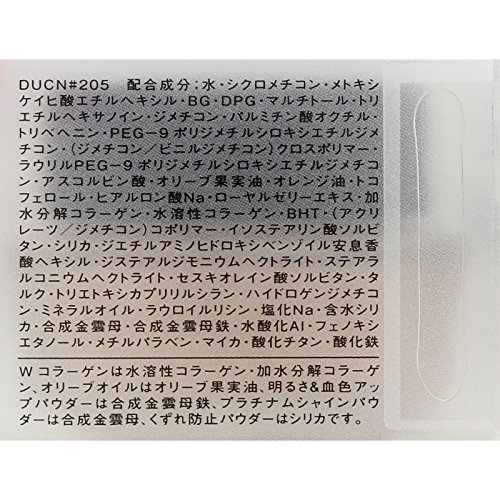 DUCN#205 配合成分;水・シクロメチコン・メトキシ
ケイヒ酸エチルヘキシル・BG・DPG・マルチトール・トリ
エチルヘキサノイン・ジメチコン・パルミチン酸オクチル・
トリベヘニン・PEG-9 ポリジメチルシロキシエチルジメ
チコン・(ジメチコン/ビニルジメチコン)クロスポリマー・
ラウリルPEG-9ポリジメチルシロキシエチルジメチコ
ン・アスコルビン酸・オリーブ果実油・オレンジ油・トコ
フェロール・ヒアルロン酸Na・ローヤルゼリーエキス・加
水分解コラーゲン・水溶性コラーゲン・BHT・(アクリ
レーツ/ジメチコン)コポリマー・イソステアリン酸ソルビ
タン・シリカ・ジエチルアミノヒドロキシベンゾイル安息香
酸ヘキシル・ジステアルジモニウムヘクトライト・ステアラ
ルコニウムヘクトライト・セスキオレイン酸ソルビタン・タ
ルク・トリエトキシカプリリルシラン・ハイドロゲンジメチコ
ン・ミネラルオイル・ラウロイルリシン・塩化Na・含水シリ
カ・合成金雲母・合成金雲母鉄・水酸化Al・フェノキシ
エタノール・メチルパラベン・マイカ・酸化チタン・酸化鉄
Wコラーゲンは水溶性コラーゲン・加水分解コラーゲ
ン、オリーブオイルはオリーブ果実油、明るさ&血色アッ
プパウダーは合成金雲母鉄、プラチナムシャインパウ
ダーは合成金雲母、くずれ防止パウダーはシリカです。